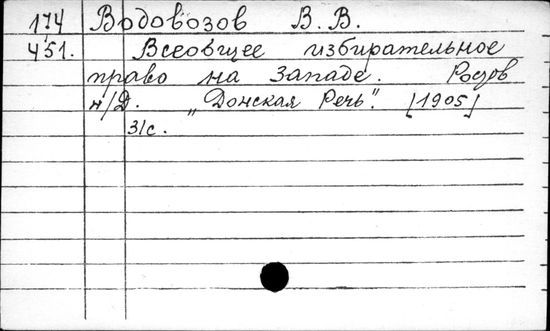 174 Водовозов В. В.
451. Всеобщее избирательное
право на Западе. Ростов
н/Д. "Донская Речь". [1905]
31с.